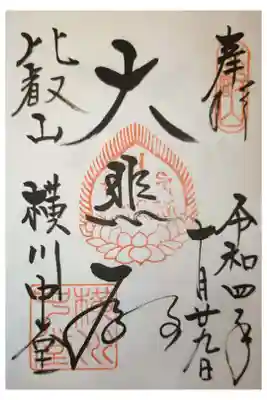 奉拝
令和四年
十月廿九日
大悲殿
比叡山
横川中堂